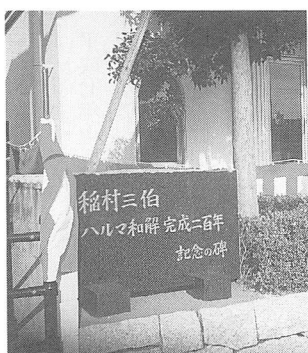 稲村三伯
ハルマ和解 完成二百年
記念の碑